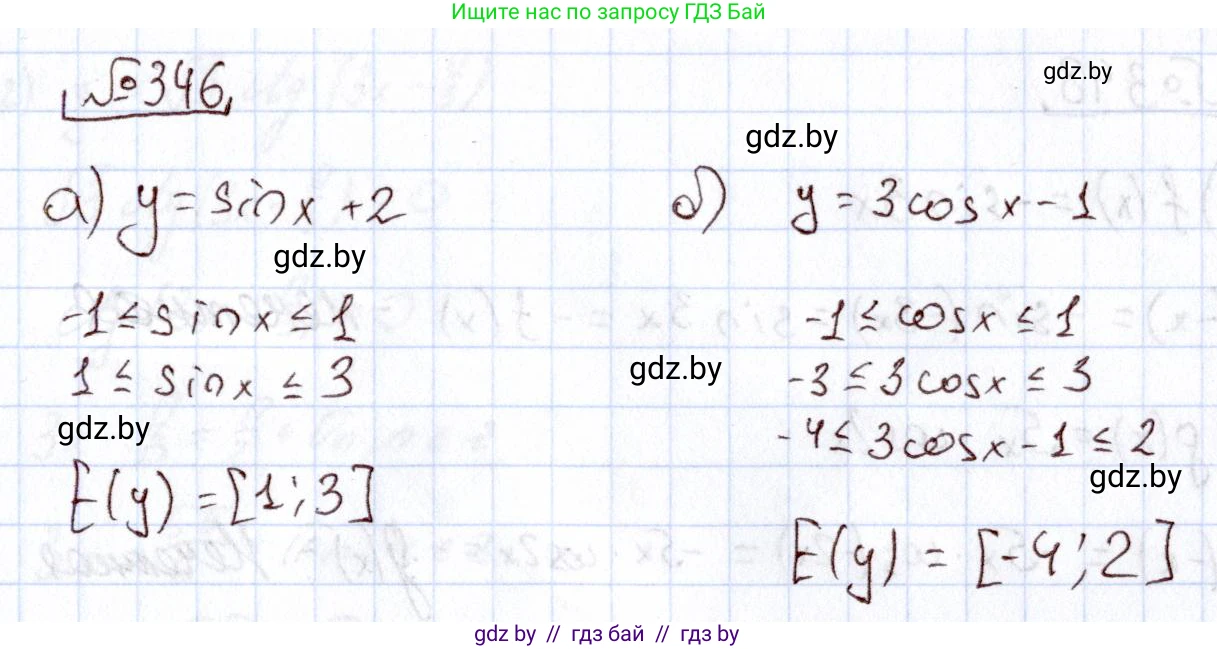 Ищите нас по запросу ГДЗ Бай
№346
gdz.by
gdz.by
а) y = sin x + 2
gdz.by
-1 ≤ sin x ≤ 1
1 ≤ sin x ≤ 3
gdz.by
E(y) = [1; 3]
б) y = 3cos x - 1
-1 ≤ cos x ≤ 1
gdz.by
-3 ≤ 3cos x ≤ 3
-4 ≤ 3cos x - 1 ≤ 2
gdz.by
E(y) = [-4; 2]
gdz by // гдз бай // гдз by